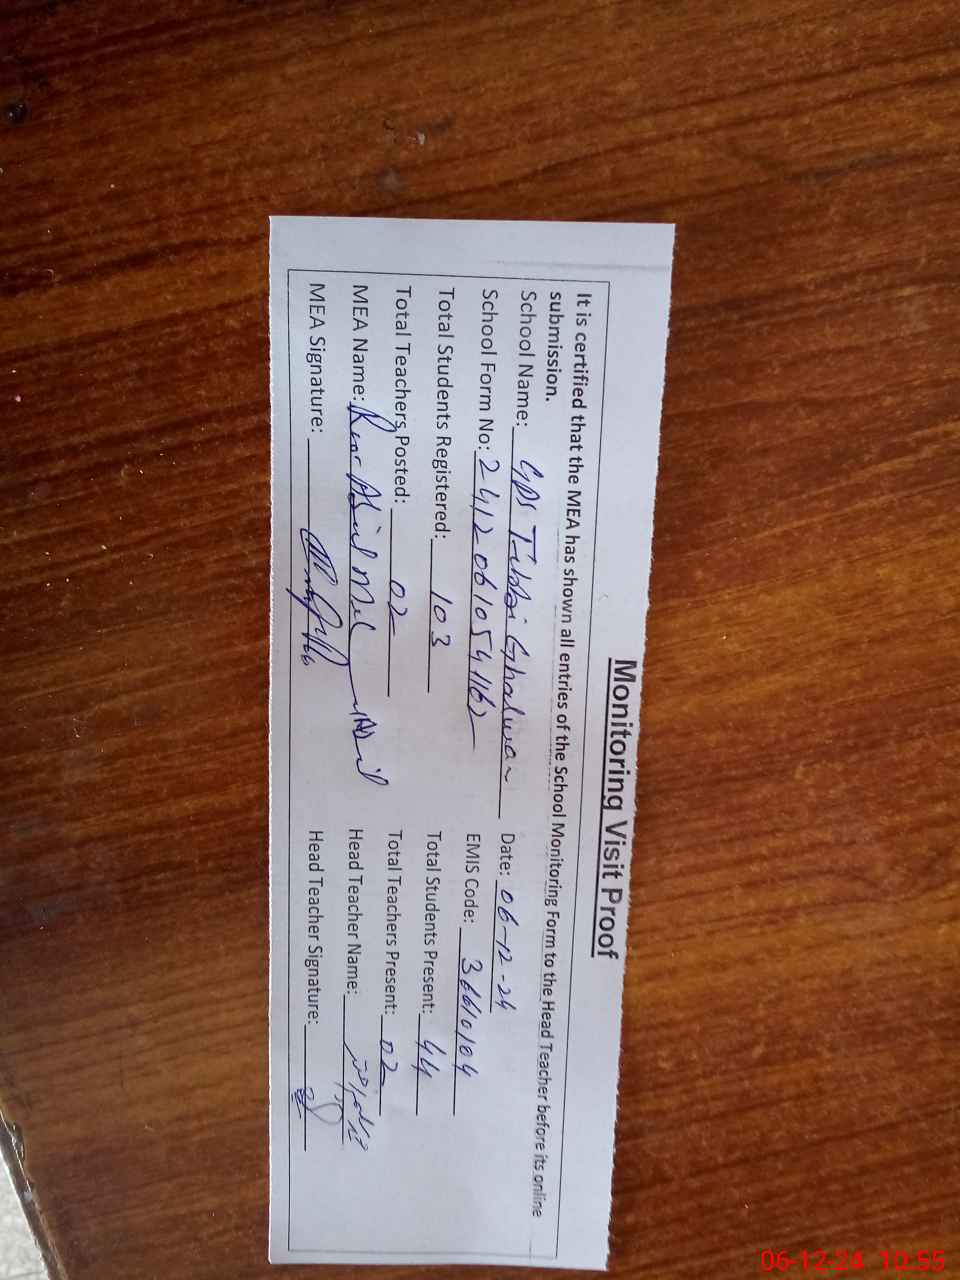 Monitoring Visit Proof
It is certified that the MEA has shown all entries of the School Monitoring Form to the Head Teacher before its online
submission.
School Name: GPS Tibbi Ghalwan Date: 06-12-24
School Form No: 2412061054162 EMIS Code: 36610104
Total Students Registered: 103 Total Students Present: 44
Total Teachers Posted: 02 Total Teachers Present: 02
MEA Name: Head Teacher Name:
MEA Signature: Head Teacher Signature:
06-12-24 10:55